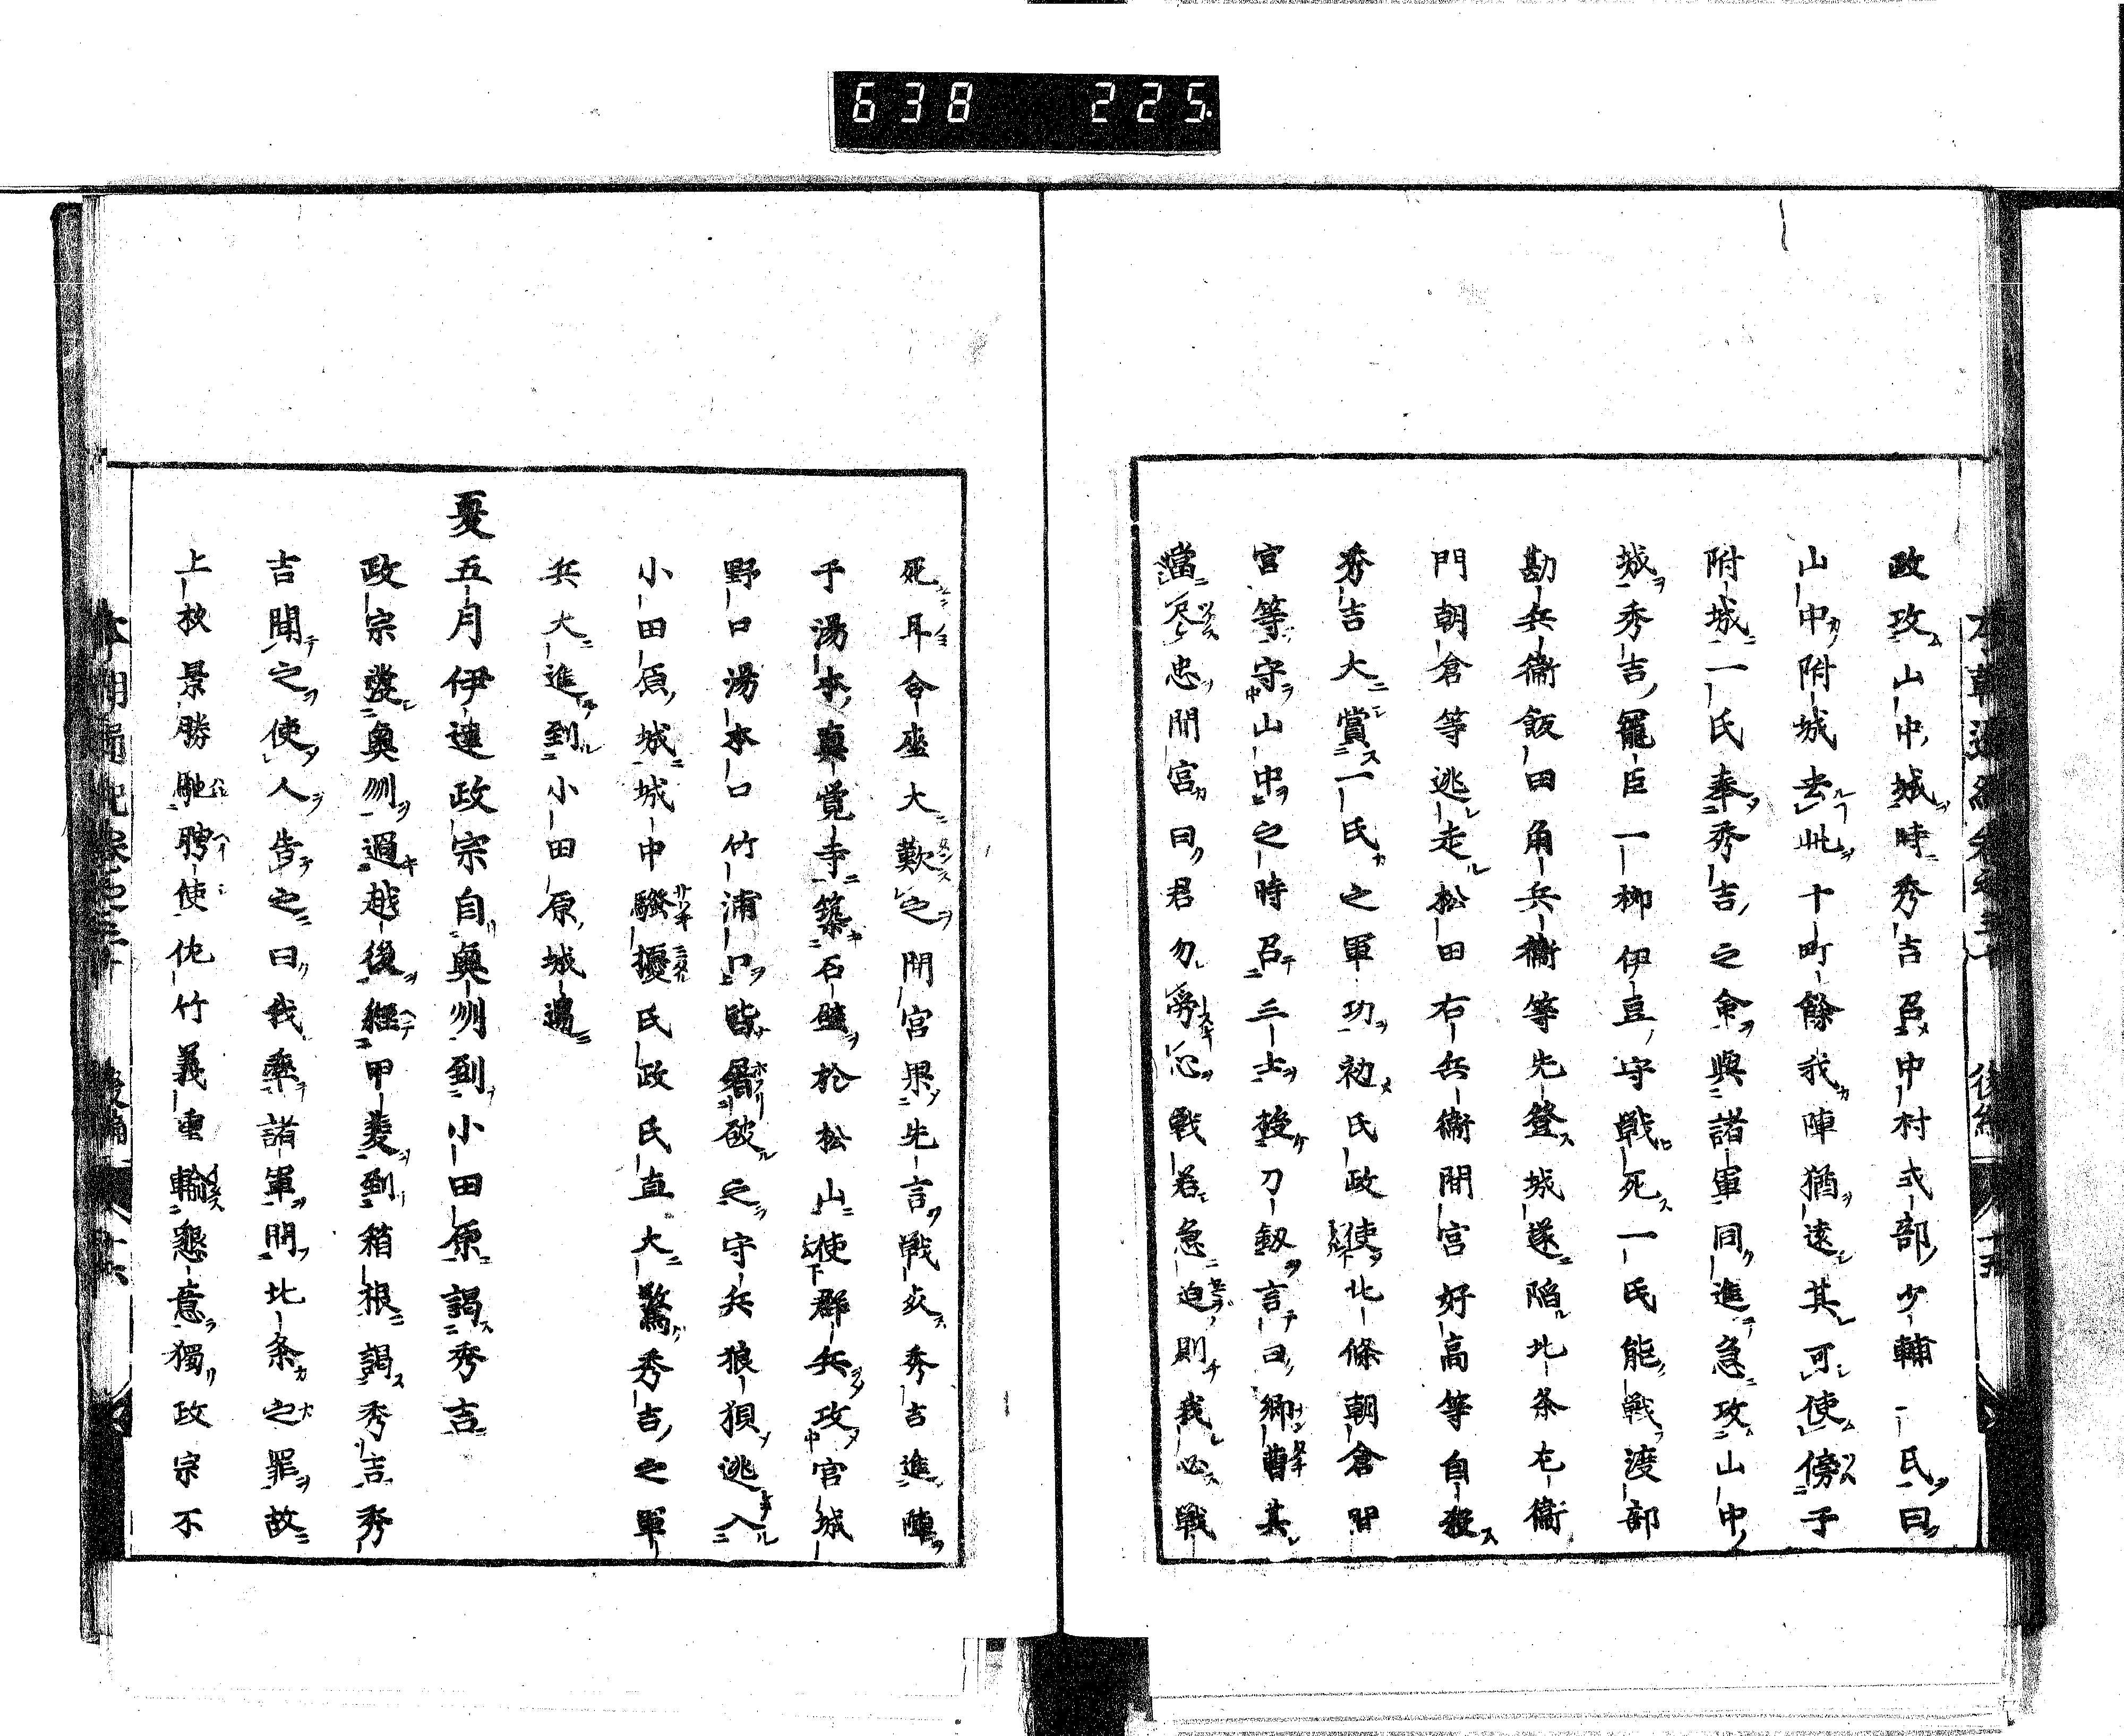 638 225
政攻山中城時秀吉召中村式部少輔一氏曰
山中附城去此十町餘我陣猶遠其可使傍于
附城一氏奉秀吉之命與諸軍同進急攻山中
城秀吉寵臣一柳伊豆守戦死一氏能戦渡部
勘兵衞飯田角兵衞等先登城遂陥北条左衞
門朝倉等逃走松田右兵衞間宮好高等自殺
秀吉大賞一氏之軍功初氏政使北條朝倉間
宮等守山中之時召二士授刀劔言曰卿曹其
當尽忠間宮曰君勿労心戦若急迫則我必戦
死耳合座大歎之間宮果先言戦死秀吉進陣
于湯本真覚寺築石壁於松山使群兵攻宮城
野口湯本口竹浦口皆屠破之守兵狼狽逃入
小田原城城中騒擾氏政氏直大驚秀吉之軍
兵大進到小田原城邊
夏五月伊達政宗自奥州到小田原謁秀吉
政宗發奥州過越後經甲斐到箱根謁秀吉秀
吉聞之使人告之曰我率諸軍問北条之罪故
上杦景勝馳聘使佐竹義重輸懇意獨政宗不